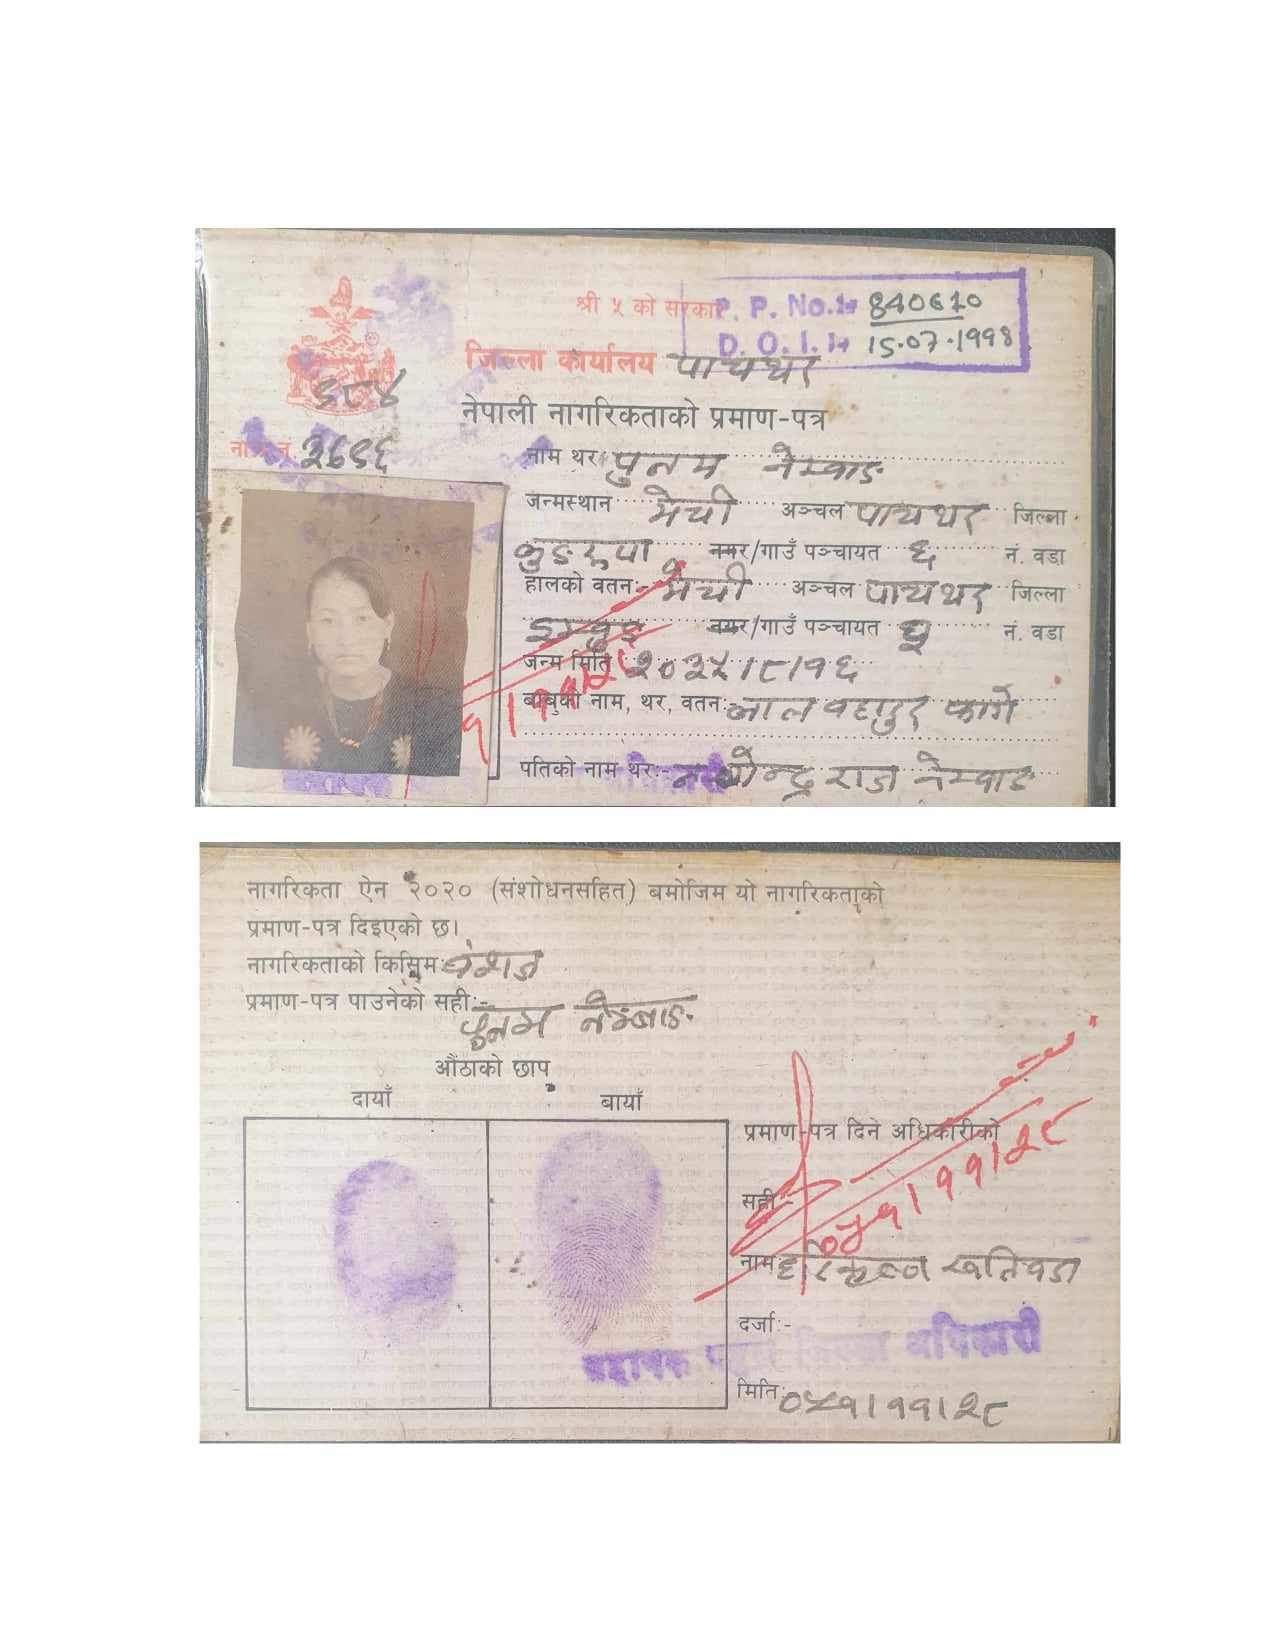 श्री ५ को सरकार
P. P. No. 1. 840610
D. O. I. 15.07.1998
जिल्ला कार्यालय पाचथर
६८४
नेपाली नागरिकताको प्रमाण-पत्र
३८९६
नाम थर पुनम नेम्वाङ
जन्मस्थान मेची अञ्चल पाचथर जिल्ला
नगर/गाउँ पञ्चायत ६ नं. वडा
हालको वतन:- मेची अञ्चल पाचथर जिल्ला
नगर/गाउँ पञ्चायत नं. वडा
जन्म मिति २०३५।८।१६
बाबुको नाम, थर, वतन: लाल वहादुर फागो
पतिको नाम थर:- राज नेम्वाङ
नागरिकता ऐन २०२० (संशोधनसहित) बमोजिम यो नागरिकताको
प्रमाण-पत्र दिइएको छ।
नागरिकताको किसिम: वंशज
प्रमाण-पत्र पाउनेको सही:-
पुनम नेम्बाङ
औंठाको छाप
दायाँ बायाँ
प्रमाण-पत्र दिने अधिकारीको
सही:-
०५१।११।२८
नाम: हरिकृष्ण खतिवडा
दर्जा:-
सहायक प्रमुख जिल्ला अधिकारी
मिति: ०५१।११।२८